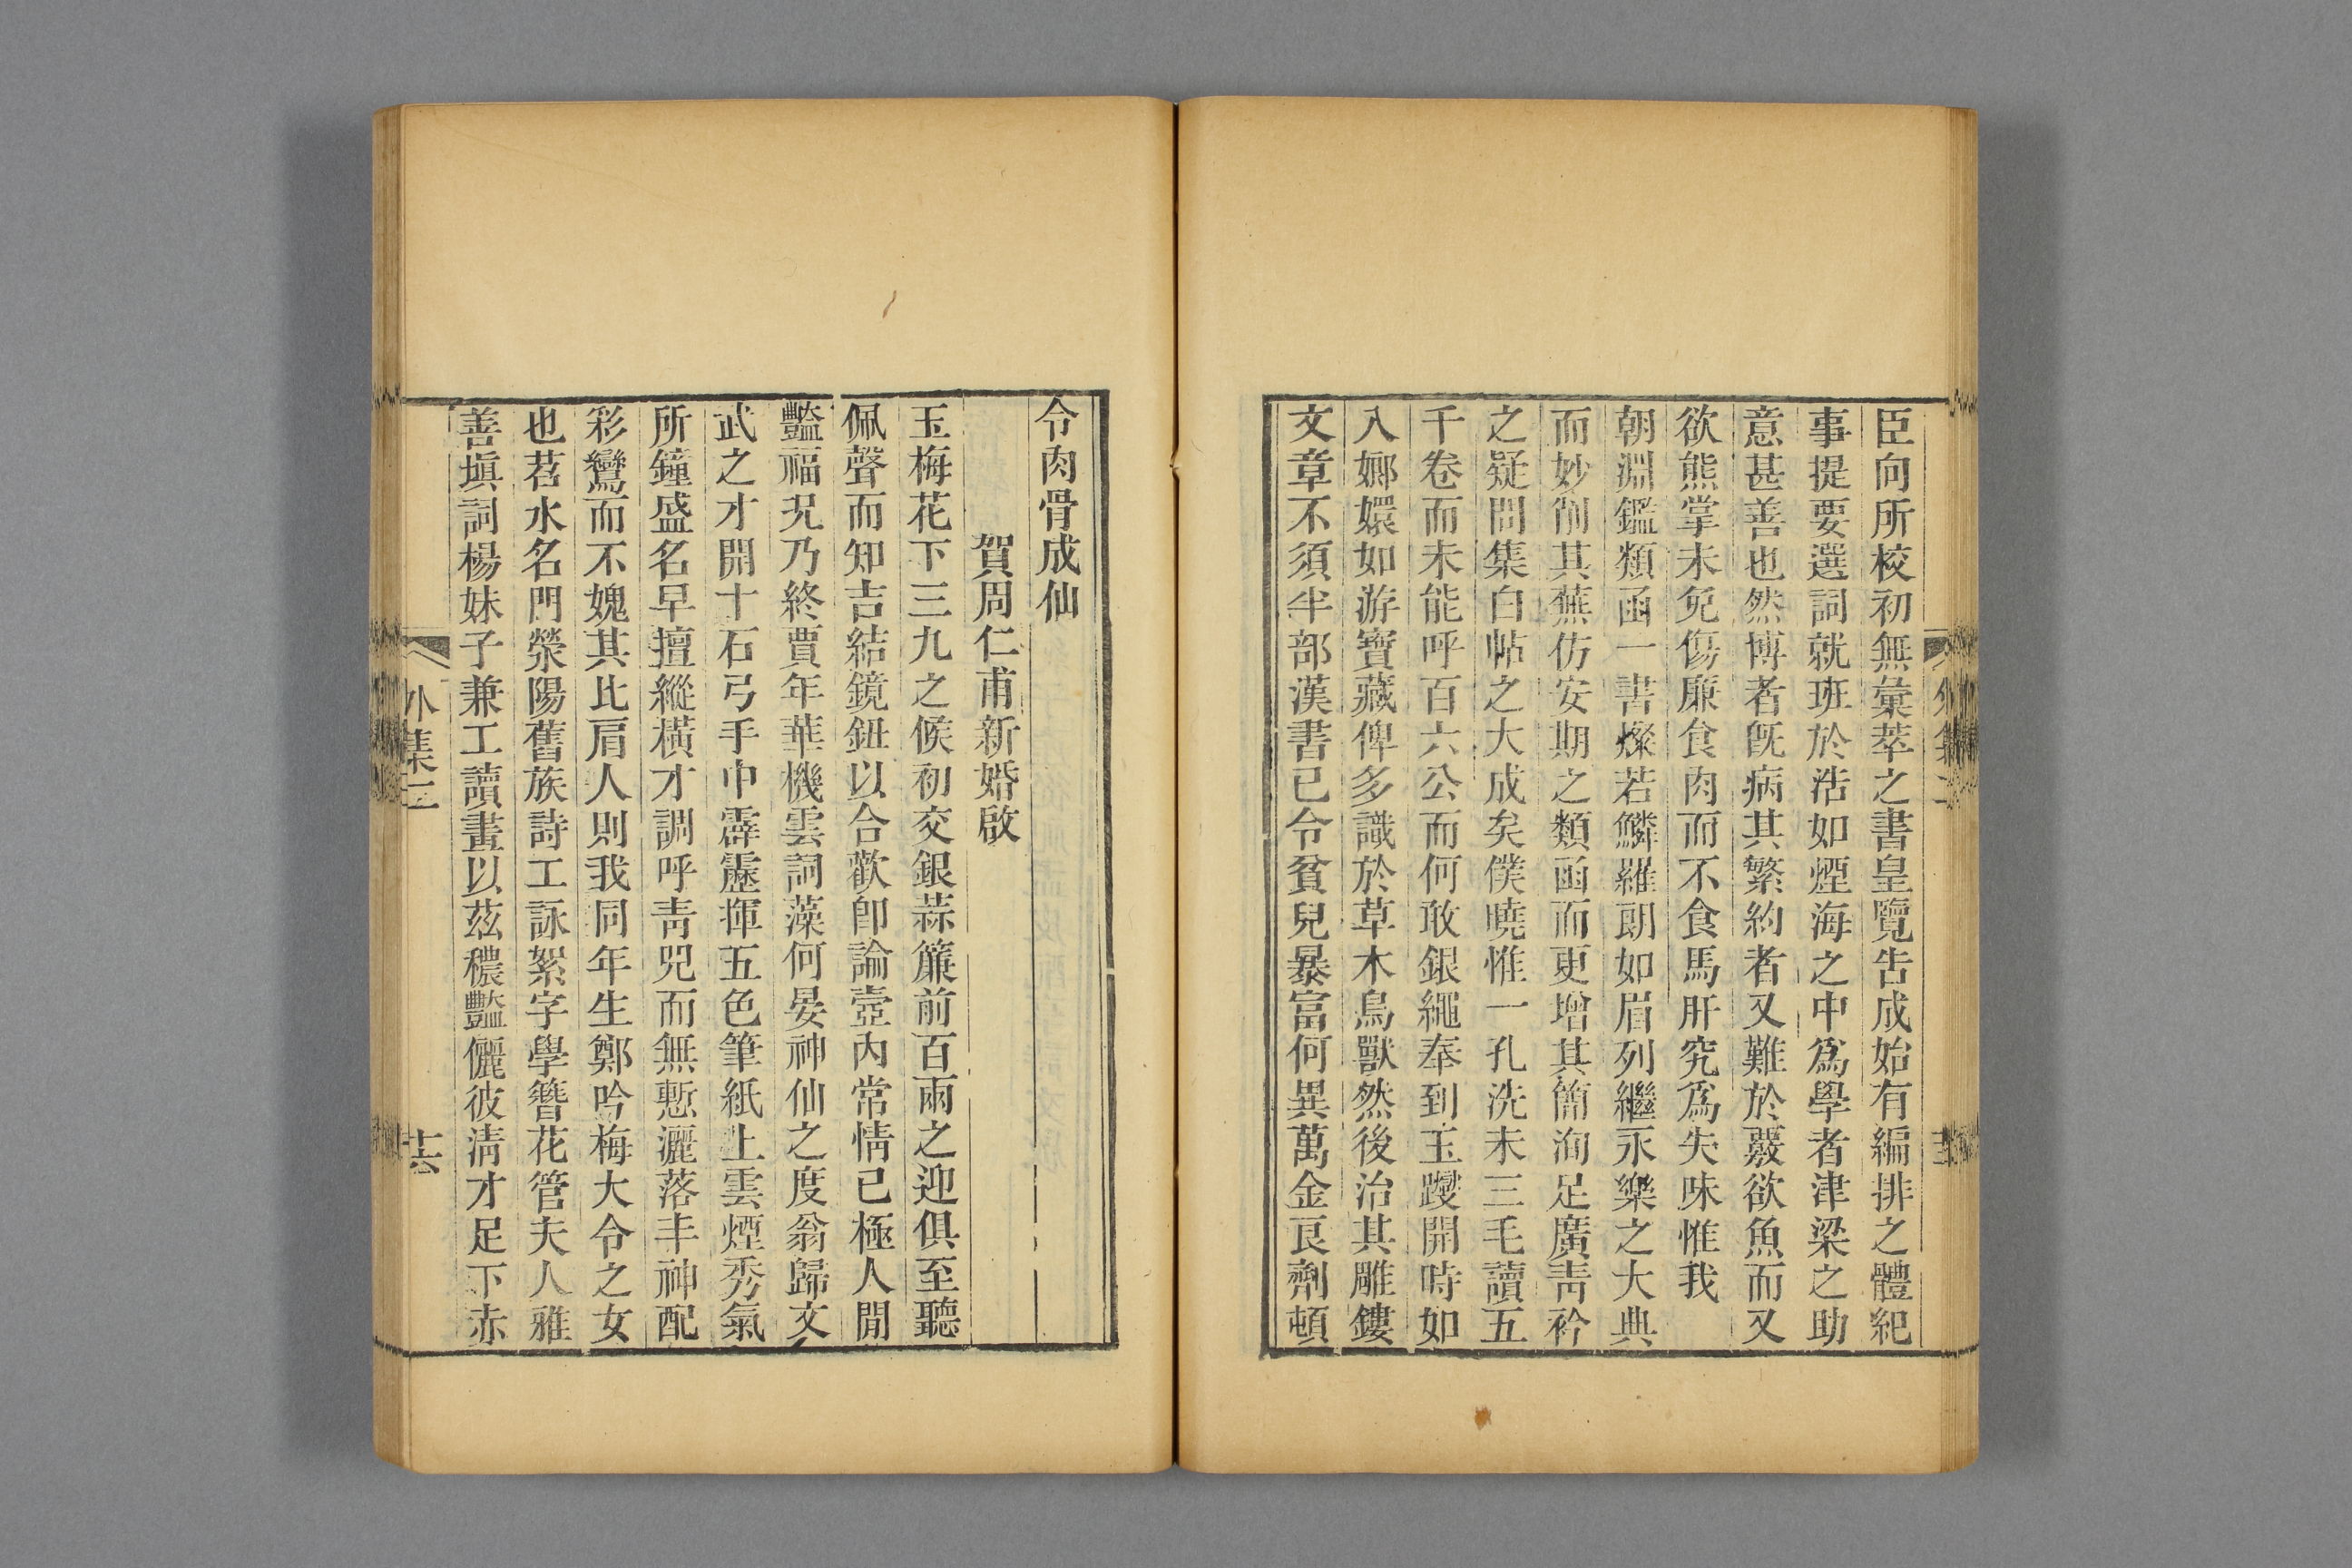 臣向所校初無彙萃之書皇覽告成始有編排之體紀
事提要選詞就班於浩如煙海之中爲學者津梁之助
意甚善也然博者旣病其繁約者又難於覈欲魚而又
欲熊掌未免傷廉食肉而不食馬肝究爲失味惟我
朝淵鑑類函一書燦若鱗羅朗如眉列繼永樂之大典
而妙削其蕪仿安期之類函而更增其簡洵足廣靑衿
之疑問集白帖之大成矣僕曉惟一孔洗未三毛讀五
千卷而未能呼百六公而何敢銀繩奉到玉躞開時如
入嫏嬛如游寶藏俾多識於草木鳥獸然後治其雕鏤
文章不須半部漢書已令貧兒暴富何異萬金良劑頓
令肉骨成仙
賀周仁甫新婚啟
玉梅花下三九之候初交銀蒜簾前百兩之迎俱至聽
佩聲而知吉結鏡鈕以合歡卽論壺內常情已極人閒
豔福況乃終賈年華機雲詞藻何晏神仙之度翁歸文
武之才開十石弓手中霹靂揮五色筆紙上雲煙秀氣
所鐘盛名早擅縱橫才調呼靑兕而無慙灑落丰神配
彩鸞而不媿其比肩人則我同年生鄭吟梅大令之女
也苕水名門滎陽舊族詩工詠絮字學簪花管夫人雅
善塡詞楊妹子兼工讀畫以茲穠豔儷彼淸才足下赤
外集三
十六